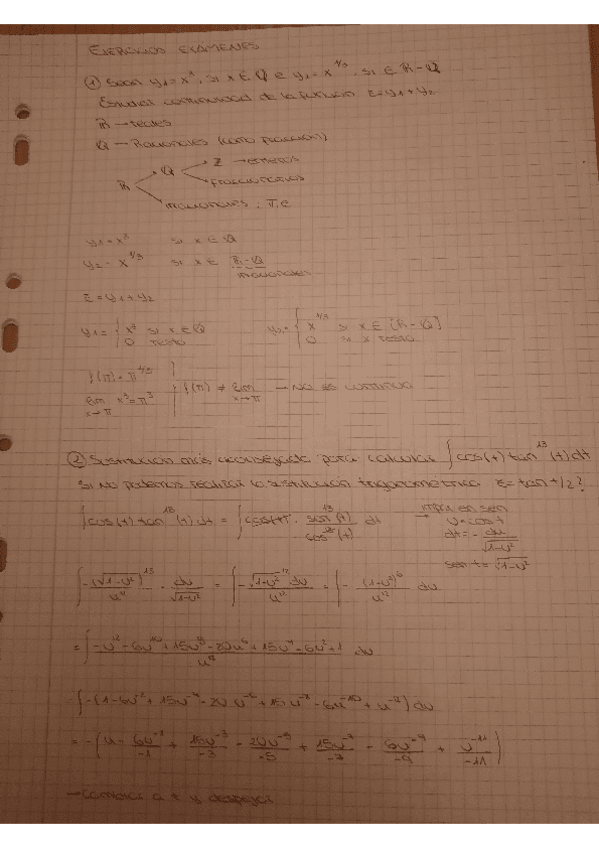 EJERCICIOS EXÁMENES
① Sean y1 = x³, si x ∈ Q e y1 = x^1/3, si ∈ R - Q
Estudiar continuidad de la función z = y1 + y2
R → reales
Q → Racionales (como fracción)
R → Q → Z → enteros
fraccionarios
irracionales: π, e
y1 = x³ si x ∈ Q
y2 = x^1/3 si x ∈ R - Q
irracionales
z = y1 + y2
y1 = { x³ si x ∈ Q y2 = { x^1/3 si x ∈ [R - Q]
0 resto 0 si x resto
f(π) = π^1/3
lim x→π x³ = π³ } f(π) ≠ lim x→π → NO es continua
② Sustitución más aconsejada para calcular ∫cos(t) tan^13(t) dt
si no podemos realizar la sustitución trigonométrica z = tan t/2?
∫cos(t) tan^13(t) dt = ∫cos(t) · sin^13(t)/cos^13(t) dt → impar en sen
u = cos t
dt = - du/√1-u²
sen t = √1-u²
∫ -(√1-u²)^13/u^12 · du/√1-u² = ∫ - √1-u²^12 du/u^12 = ∫ - (1-u²)^6/u^12 du
= ∫ -u^12 - 6u^10 + 15u^8 - 20u^6 + 15u^4 - 6u² + 1/u^12 du
∫ -(1 - 6u^-2 + 15u^-4 - 20u^-6 + 15u^-8 - 6u^-10 + u^-12) du
= -(u - 6u^-1/-1 + 15u^-3/-3 - 20u^-5/-5 + 15u^-7/-7 - 6u^-9/-9 + u^-11/-11)